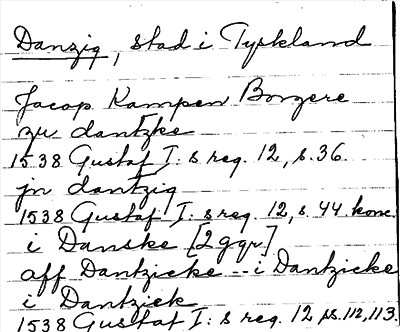 Danzig, stad i Tyskland
Jacop Kampen Borgere
zu dantzke
1538 Gustaf I: s reg. 12, s. 36.
jn dantzig
1538 Gustaf I: s reg. 12, s. 44. konc.
i Danske [2 ggr]
aff Dantzicke -- i Dantzicke
i Dantziek
1538 Gustaf I: s reg. 12 ss. 112, 113.